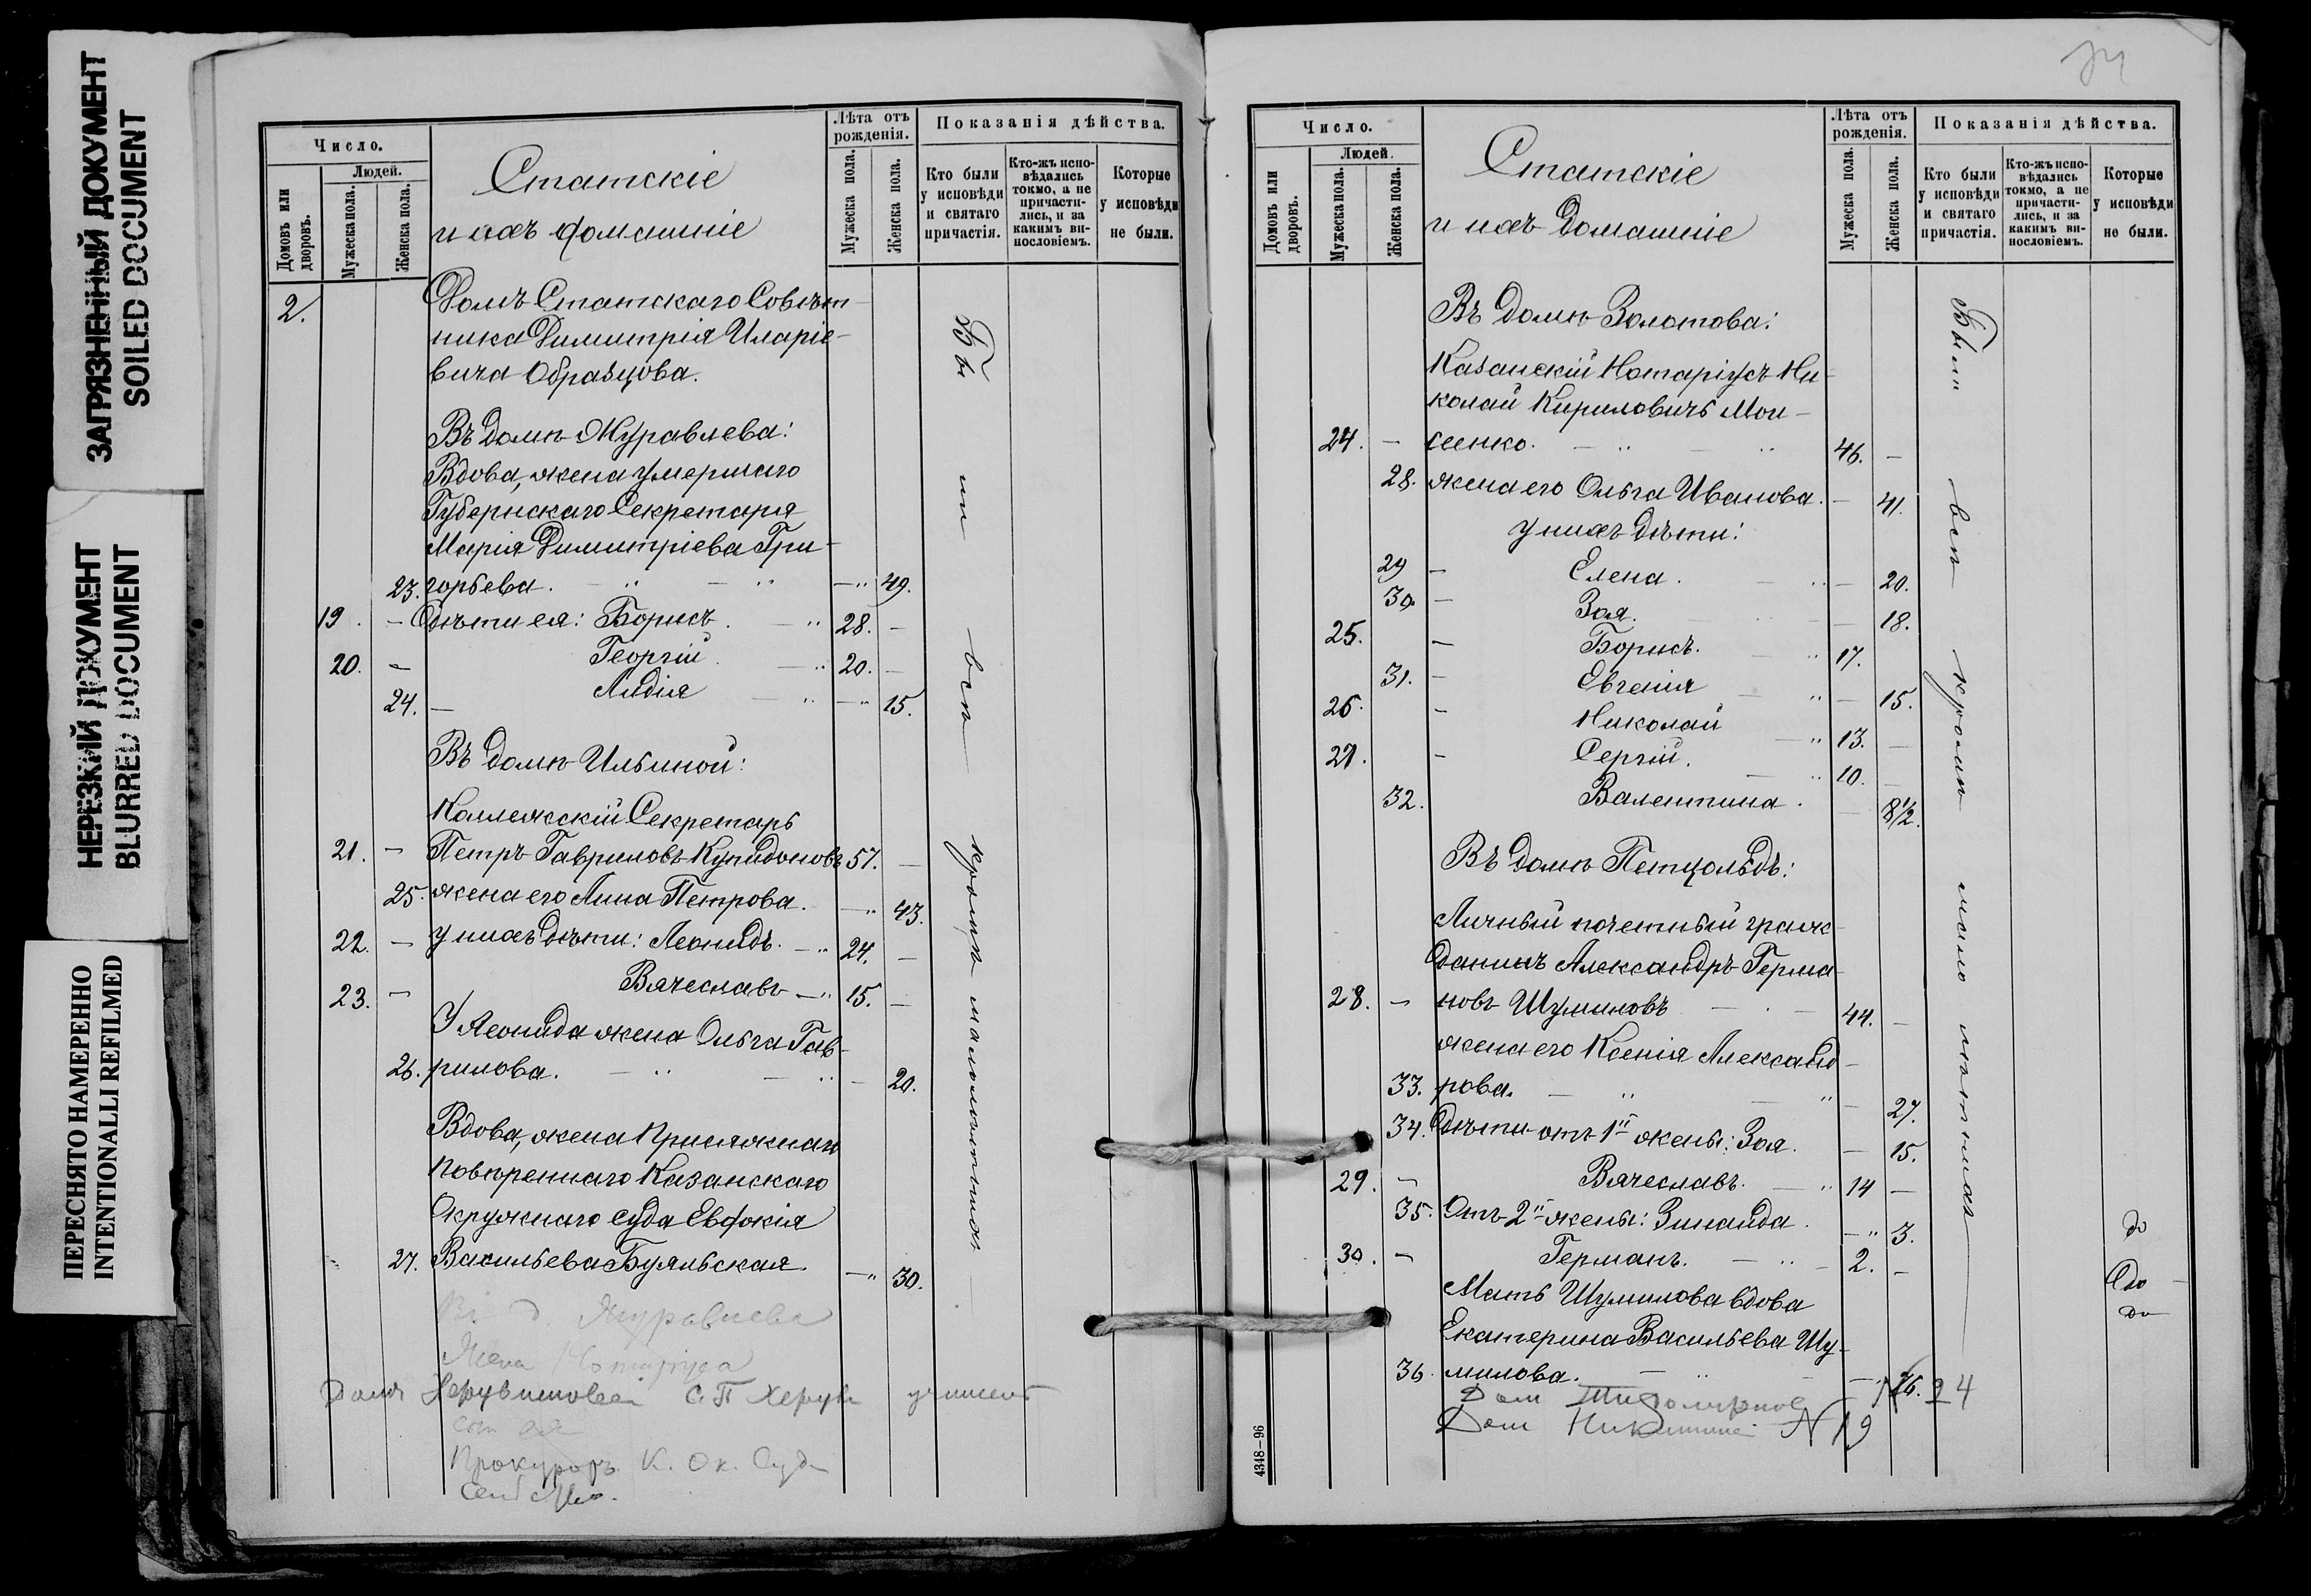 ЗАГРЯЗНЕННЫЙ ДОКУМЕНТ
SOILED DOCUMENT
НЕРЕЗКИЙ ДОКУМЕНТ
BLURRED DOCUMENT
ПЕРЕСНЯТО НАМЕРЕННО
INTENTIONALLI REFILMED
Число.
Людей.
Домовъ или дворовъ.
Мужеска пола.
Женска пола.
Статскіе
и ихъ домашніе
Лѣта отъ рожденія.
Мужеска пола.
Женска пола.
Показанія дѣйства.
Кто были у исповѣди и святаго причастія.
Кто-жъ исповѣдались токмо, а не причастились, и за какимъ винословіемъ.
Которые у исповѣди не были.
2. Домъ Статскаго Совѣт-
ника Димитрія Иларіе-
вича Образцова.
Въ домѣ Журавлева:
Вдова, жена умершаго
Губернскаго Секретаря
Марія Димитріева Гри-
23. горьева. 49.
19. Дѣти ея: Борисъ. 28.
20. Георгій. 20.
24. Лидія 15.
Въ домѣ Ильиной:
Коллежскій Секретарь
21. Петръ Гавриловъ Купидоновъ 57.
25. жена его Анна Петрова. 43.
22. У нихъ дѣти: Леонидъ. 24.
23. Вячеславъ 15.
У Леонида жена Ольга Гав-
26. рилова. 20.
Вдова, жена Присяжнаго
Повѣреннаго Казанскаго
Окружнаго суда Евдокія
27. Васильева Буяльская. 30.
Были всѣ кромѣ малолѣтнихъ
Въ д. Журавлева
Жена Нотаріуса
Прокуроръ К. Ок. Суда
74
Число.
Людей.
Домовъ или дворовъ.
Мужеска пола.
Женска пола.
Статскіе
и ихъ домашніе
Лѣта отъ рожденія.
Мужеска пола.
Женска пола.
Показанія дѣйства.
Кто были у исповѣди и святаго причастія.
Кто-жъ исповѣдались токмо, а не причастились, и за какимъ винословіемъ.
Которые у исповѣди не были.
Въ домѣ Золотова:
Казанскій Нотаріусъ Ни-
колай Кириловичъ Мои-
24. сеенко. 46.
28. жена его Ольга Иванова. 41.
У нихъ дѣти:
29 Елена. 20.
30. Зоя. 18.
25. Борисъ. 17.
31. Евгенія 15.
26. Николай 13.
27. Сергій. 10.
32. Валентина. 8½.
Въ домѣ Петцольдъ:
Личный почетный граж-
данинъ Александръ Герма-
28. новъ Шумиловъ 44.
жена его Ксенія Александ-
33. рова. 27.
34. Дѣти отъ 1й жены: Зоя. 15.
29. Вячеславъ. 14
35. Отъ 2й жены: Зинаида. 3. до
30. Германъ. 2. до
Мать Шумилова вдова до
Екатерина Васильева Шу-
36. милова. 76.
Были всѣ кромѣ малолѣтнихъ
24
Дом
Дом Никитиной N 19
4348—96